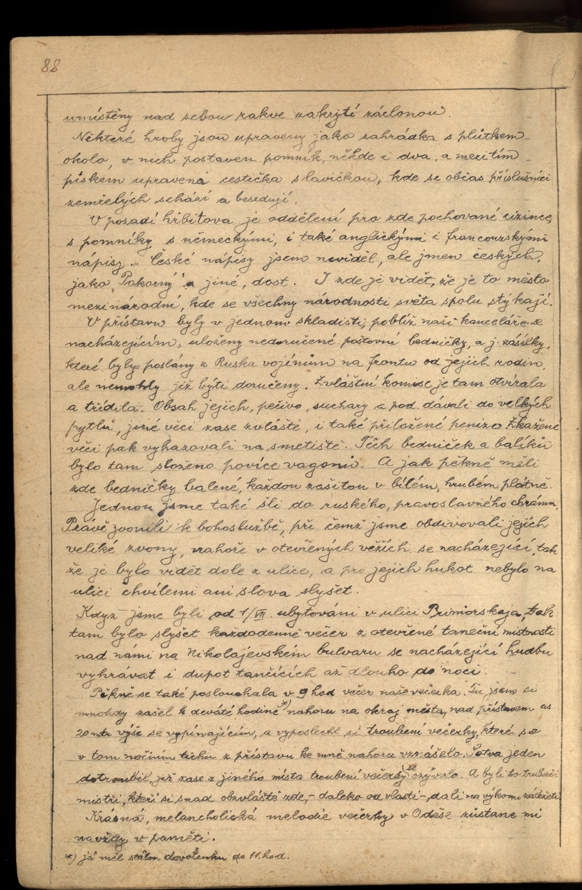 88
umístěny nad sebou rakve zakryté záclonou.
Některé hroby jsou upraveny jako zahrádka s plůtkem
okolo, v nich postaven pomník, někde i dva, a mezitím
pískem upravená cestička s lavičkou, kde se občas příslušníci
zemřelých schází a besedují.
V pozadí hřbitova je oddělení pro zde pochované cizince
s pomníky s německými, i také anglickými i francouzskými
nápisy. České nápisy jsem neviděl, ale jmen českých,
jako "Pokorný" a jiné, dost. I zde je vidět, že je to město
mezinárodní, kde se všechny národnosti světa spolu stýkají.
V přístavu byly v jednom skladišti, poblíž naší kanceláře se
nacházejícím, uloženy nedoručené poštovní bedničky, a j. zásilky,
které byly poslány z Ruska vojínům na frontu od jejich rodin,
ale nemohly již býti doručeny. Zvláštní komise je tam otvírala
a třídila. Obsah jejich, pečivo, suchary a pod. dávali do velkých
pytlů, jiné věci zase zvláště, i také přiložené peníze. Zkažené
věci pak vyhazovali na smetiště. Těch bedniček a balíků
bylo tam složeno povíce vagonů. A jak pěkně měli
zde bedničky balené, každou zašitou v bílém, hrubém plátně.
Jednou jsme také šli do ruského, pravoslavného chrámu.
Právě zvonili k bohoslužbě, při čemž jsme obdivovali jejich
veliké zvony, nahoře v otevřených věžích se nacházející, tak
že je bylo vidět dole z ulice, a pro jejich hukot nebylo na
ulici chvílemi ani slova slyšet.
Když jsme byli od 1/VII ubytováni v ulici Primorskaja, tak
tam bylo slyšet každodenně večer z otevřené taneční místnosti
nad námi na Nikolajevském bulvaru se nacházející hudbu
vyhrávat i dupot tančících až dlouho do noci.
Pěkně se také poslouchala v 9 hod večer naše večerka. Šel jsem si
mnohdy zašel k deváté hodině x) nahoru na okraj města, nad přístavem as
20 mtr výše se vypínajícím, a vyposlechl si troubení večerky, které se
v tom nočním tichu z přístavu ke mně nahoru vznášelo. Sotva jeden
dotroubil, již zase z jiného místa troubení večerky se ozývalo. A byli to trubači
mistři, kteří si snad obzvláště zde, - daleko od vlasti - dali na výkonu záležeti.
Krásná, melancholická melodie večerky v Oděse zůstane mi
navždy v paměti.
x) já měl stálou dovolenku do 11. hod.